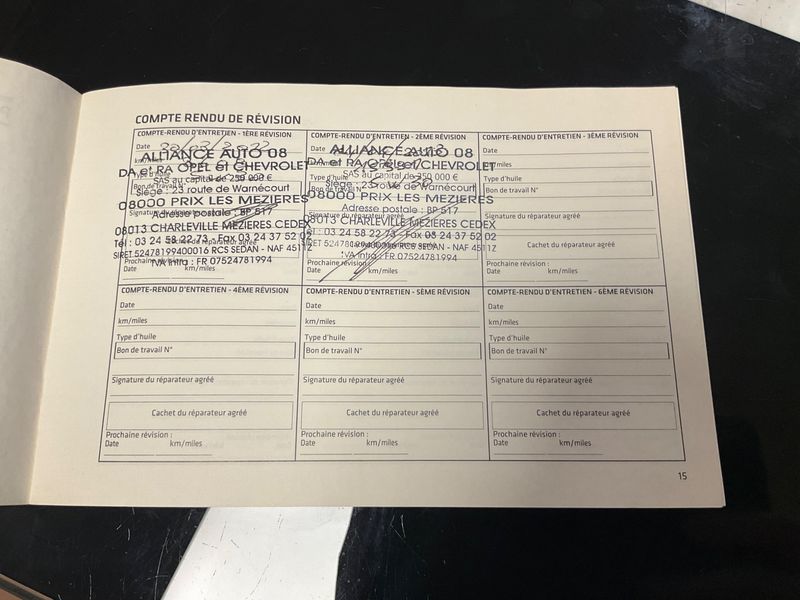 COMPTE RENDU DE RÉVISION
COMPTE-RENDU D'ENTRETIEN - 1ÈRE RÉVISION
Date
km/miles
ALLIANCE AUTO 08
DA et RA OPEL et CHEVROLET
Type d'huile
SAS au capital de 250 000 €
Bon de travail N°
Siège : 23 route de Warnécourt
08000 PRIX LES MEZIERES
Signature du réparateur agréé
Adresse postale : BP 517
08013 CHARLEVILLE MEZIERES CEDEX
Tél : 03 24 58 22 73 - Fax 03 24 37 52 02
Cachet du réparateur agréé
SIRET 52478199400016 RCS SEDAN - NAF 4511Z
Prochaine révision :
TVA intra : FR 07524781994
Date
km/miles
COMPTE-RENDU D'ENTRETIEN - 2ÈME RÉVISION
Date
ALLIANCE AUTO 08
DA et RA OPEL et CHEVROLET
Type d'huile
SAS au capital de 250 000 €
Siège : 23 route de Warnécourt
08000 PRIX LES MEZIERES
Adresse postale : BP 517
08013 CHARLEVILLE MEZIERES CEDEX
Tél : 03 24 58 22 73 - Fax 03 24 37 52 02
SIRET 52478199400016 RCS SEDAN - NAF 4511Z
Prochaine révision :
TVA intra : FR 07524781994
Date
km/miles
COMPTE-RENDU D'ENTRETIEN - 3ÈME RÉVISION
Date
km/miles
Type d'huile
Bon de travail N°
Signature du réparateur agréé
Cachet du réparateur agréé
Prochaine révision :
Date km/miles
COMPTE-RENDU D'ENTRETIEN - 4ÈME RÉVISION
Date
km/miles
Type d'huile
Bon de travail N°
Signature du réparateur agréé
Cachet du réparateur agréé
Prochaine révision :
Date km/miles
COMPTE-RENDU D'ENTRETIEN - 5ÈME RÉVISION
Date
km/miles
Type d'huile
Bon de travail N°
Signature du réparateur agréé
Cachet du réparateur agréé
Prochaine révision :
Date km/miles
COMPTE-RENDU D'ENTRETIEN - 6ÈME RÉVISION
Date
km/miles
Type d'huile
Bon de travail N°
Signature du réparateur agréé
Cachet du réparateur agréé
Prochaine révision :
Date km/miles
15